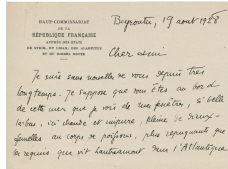 HAUT-COMMISSARIAT
DE LA
RÉPUBLIQUE FRANÇAISE
AUPRÈS DES ÉTATS
DE SYRIE, DU LIBAN, DES ALAOUITES
ET DU DJEBEL DRUZE
Beyrouth, 19 août 1928
Cher ami
Je suis sans nouvelle de vous depuis très
longtemps. Je suppose que vous êtes au bord
de cette mer que je vois de ma fenêtre, si belle
là-bas, ici chaude et impure, pleine de
femelles au corps de poissons, plus répugnants que
les requins que vit dans l'Atlantique